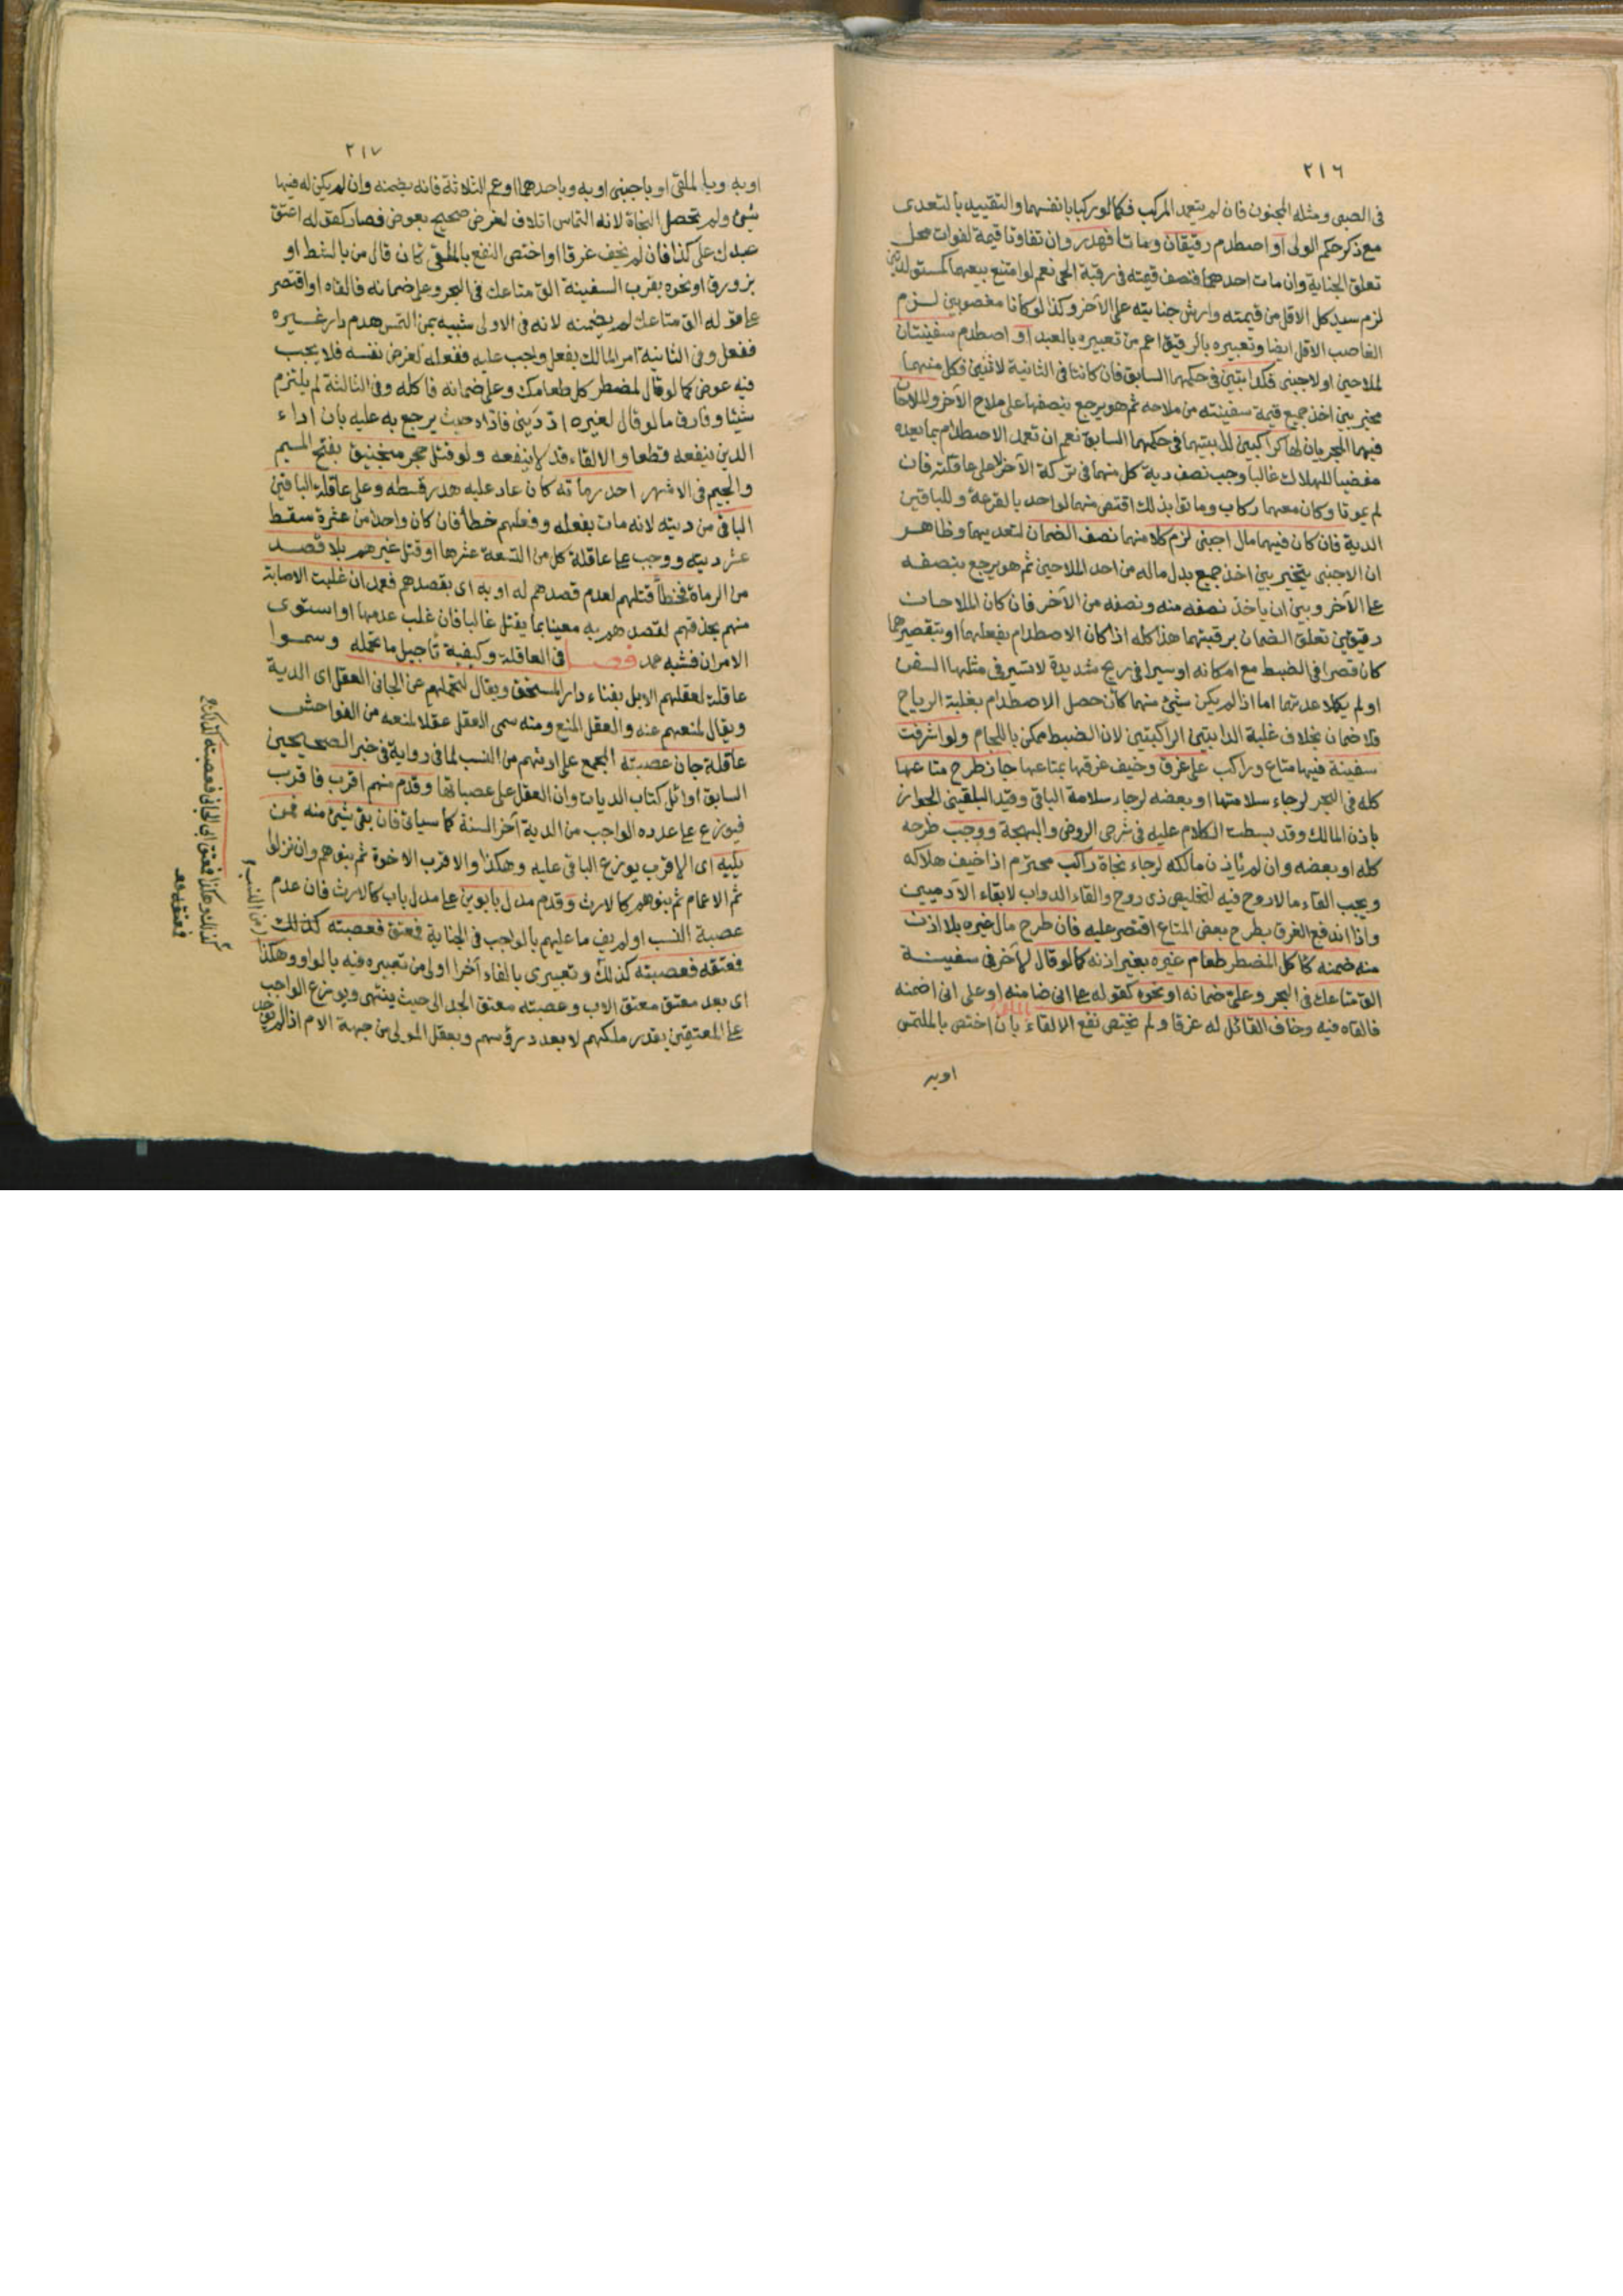 ٢١٦
فى الصبى ومثله المجنون فان لم يتعمد المركب فكما لو ركبا بانفسهما والتقييد بالتعدى
مع ذكر حكم الولى او اصطدم رقيقان وماتا فهدر وان تفاوتا قيمة لفوات محل
تعلق الجناية وان مات احدهما فنصف قيمته فى رقبة الحى نعم لو امتنع بيعهما كمستولدتين
لزم سيد كل الاقل من قيمته وارش جنايته على الآخر وكذا لو كانا مغصوبين لزم
الغاصب الاقل ايضا وتعبيره بالرقيق اعم من تعبيره بالعبد او اصطدم سفينتان
لملاحين او لاجنبى فكدابتين فى حكمهما السابق فان كانتا فى الثانية لاثنين فكل منهما
مخير بين اخذ جميع قيمة سفينته من ملاحه ثم هو يرجع بنصفها على ملاح الآخر والملاحان
فيهما المجريان لها كراكبين لدابتيهما فى حكمهما السابق نعم ان تعمد الاصطدام بما يعده
مفضيا للهلاك غالبا وجب نصف دية كل منهما فى تركة الآخر لا على عاقلته فان
لم يموتا وكان معهما ركاب وماتوا بذلك اقتص منهما لواحد بالقرعة وللباقين
الدية فان كان فيهما مال اجنبى لزم كلا منهما نصف الضمان لتعديهما وظاهر
ان الاجنبى يتخير بين اخذ جميع بدل ماله من احد الملاحين ثم هو يرجع بنصفه
على الآخر وبين ان ياخذ نصفه منه ونصفه من الآخر فان كان الملاحان
رقيقين تعلق الضمان برقبتهما هذا كله اذا كان الاصطدام بفعلهما او بتقصيرهما
كان قصرا فى الضبط مع امكانه او سيرا فى ريح شديدة لا تسير فى مثلها السفن
او لم يكملا عدتهما اما اذا لم يكن شىء منهما كأن حصل الاصطدام بغلبة الرياح
فلا ضمان بخلاف غلبة الدابتين الراكبتين لان الضبط ممكن باللجام ولو اشرفت
سفينة فيها متاع وراكب على غرق وخيف غرقها بمتاعها جاز طرح متاعها
كله فى البحر لرجاء سلامتها او بعضه لرجاء سلامة الباقى وقيد البلقينى الجواز
باذن المالك وقد بسطت الكلام عليه فى شرحى الروض والبهجة ووجب طرحه
كله او بعضه وان لم ياذن مالكه لرجاء نجاة راكب محترم اذا خيف هلاكه
ويجب القاء مالا روح فيه لتخليص ذى روح والقاء الدواب لابقاء الآدميين
واذا اندفع الغرق بطرح بعض المتاع اقتصر عليه فان طرح مال غيره بلا اذن
منه ضمنه كاكل المضطر طعام غيره بغير اذنه كما لو قال لآخر فى سفينة
الق متاعك فى البحر وعلىّ ضمانه او نحوه كقوله على انى ضامنه او على انى اضمنه
فالقاه فيه وخاف القائل له غرقا ولم يختص نفع الالقاء بان اختص بالملتمس
او به
٢١٧
او به وبالملقى او باجنبى او به وباحدهما او عم الثلاثة فانه يضمنه وان لم يكن له فيها
شىء ولم تحصل النجاة لانه التماس اتلاف لغرض صحيح بعوض فصار كقوله اعتق
عبدك على كذا فان لم يخف غرقا او اختص النفع بالملقى كان قال من بالشط او
بزورق او نحوه بقرب السفينة الق متاعك فى البحر وعلى ضمانه فالقاه او اقتصر
على قوله الق متاعك لم يضمنه لانه فى الاولى شبيه بمن التمس هدم دار غيره
ففعل وفى الثانية امر المالك بفعل واجب عليه ففعله لغرض نفسه فلا يجب
فيه عوض كما لو قال لمضطر كل طعامك وعلى ضمانه فاكله وفى الثالثة لم يلتزم
شيئا وفارق ما لو قال لغيره ادّ دينى فاداه حيث يرجع به عليه بان اداء
الدين ينفعه قطعا والالقاء قد لا ينفعه ولو قتل حجر منجنيق بفتح الميم
والجيم فى الاشهر احد رماته كان عاد عليه هدر قسطه وعلى عاقلة الباقين
الباقى من ديته لانه مات بفعله وفعلهم خطأ فان كان واحدا من عشرة سقط
عشر ديته ووجب على عاقلة كل من التسعة عشرها او قتل غيرهم بلا قصد
من الرماة فخطأ قتلهم لعدم قصدهم له او به اى بقصدهم فعمد ان غلبت الاصابة
منهم بحذقهم لقصدهم به معينا بما يقتل غالبا فان غلب عدمها او استوى
الامران فشبه عمد فصل فى العاقلة وكيفية تأجيل ما تحمله وسموا
عاقلة لعقلهم الابل بفناء دار المستحق ويقال لتحملهم عن الجانى العقل اى الدية
ويقال لمنعهم عنه والعقل المنع ومنه سمى العقل عقلا لمنعه من الفواحش
عاقلة جان عصبته المجمع على ارثهم من النسب لما فى رواية فى خبر الصحيحين
السابق اوائل كتاب الديات وان العقل على عصباتها وقدم منهم اقرب فاقرب
فيوزع على عدده الواجب من الدية آخر السنة كما سيأتى فان بقى شىء منه فمن
يليه اى الاقرب يوزع الباقى عليه وهكذا والاقرب الاخوة ثم بنوهم وان نزلوا
ثم الاعمام ثم بنوهم كالارث وقدم مدل بابوين على مدل باب كالارث فان عدم
عصبة النسب او لم يف ما عليهم بالواجب فى الجناية فمعتق فعصبته كذلك
فمعتقه فعصبته كذلك وتعبيرى بالفاء آخرا اولى من تعبيره فيه بالواو وهكذا
اى بعد معتق معتق الاب وعصبته معتق الجد الى حيث ينتهى ويوزع الواجب
على المعتقين بقدر ملكهم لا بعدد رؤسهم ويعقل المولى من جهة الام اذا لم
من النسب
كذلك وهكذا فمعتق ابى الجانى فعصبته كذلك
فمعتقه